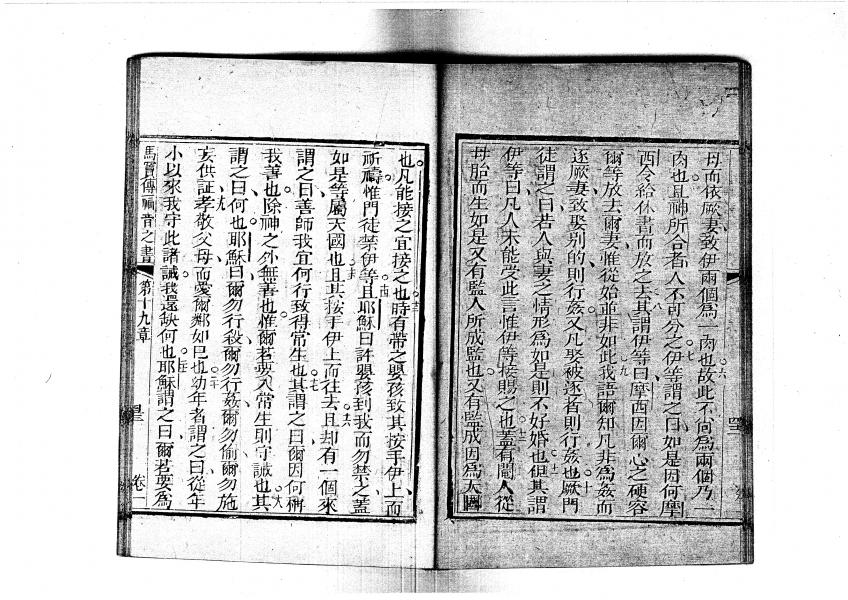 母而依厥妻致伊兩個為一肉也故此不尚為兩個乃一
肉也且神所合者人不可分之伊等謂之曰如是因何摩
西令給休書而放之去其謂伊等曰摩西因爾心之硬容
爾等放去爾妻惟從始並非如此我語爾知凡非為姦而
逐厥妻致娶别的則行姦又凡娶被逐者則行姦也厥門
徒謂之曰若人與妻之情形為如是則不好婚也但其謂
伊等曰凡人未能受此言惟伊等接賜之也蓋有閹人從
母胎而生如是又有監人所成監也又有監成因為天國
也凡能接之宜接之也時有帶之嬰孩致其按手伊上而
祈禱惟門徒禁伊等且耶穌曰許嬰孩到我而勿禁之蓋
如是等屬天國也且其按手伊上而往去且却有一個來
謂之曰善師我宜何行致得常生也其謂之曰爾因何稱
我善也除神之外無善也惟爾若要入常生則守誡也其
謂之曰何也耶穌曰爾勿行殺爾勿行姦爾勿偷爾勿施
妄供証孝敬父母而愛爾鄰如己也幼年者謂之曰從年
小以來我守此諸誡我還缺何也耶穌謂之曰爾若要為
馬竇傳福音之書 第十九章 卷一